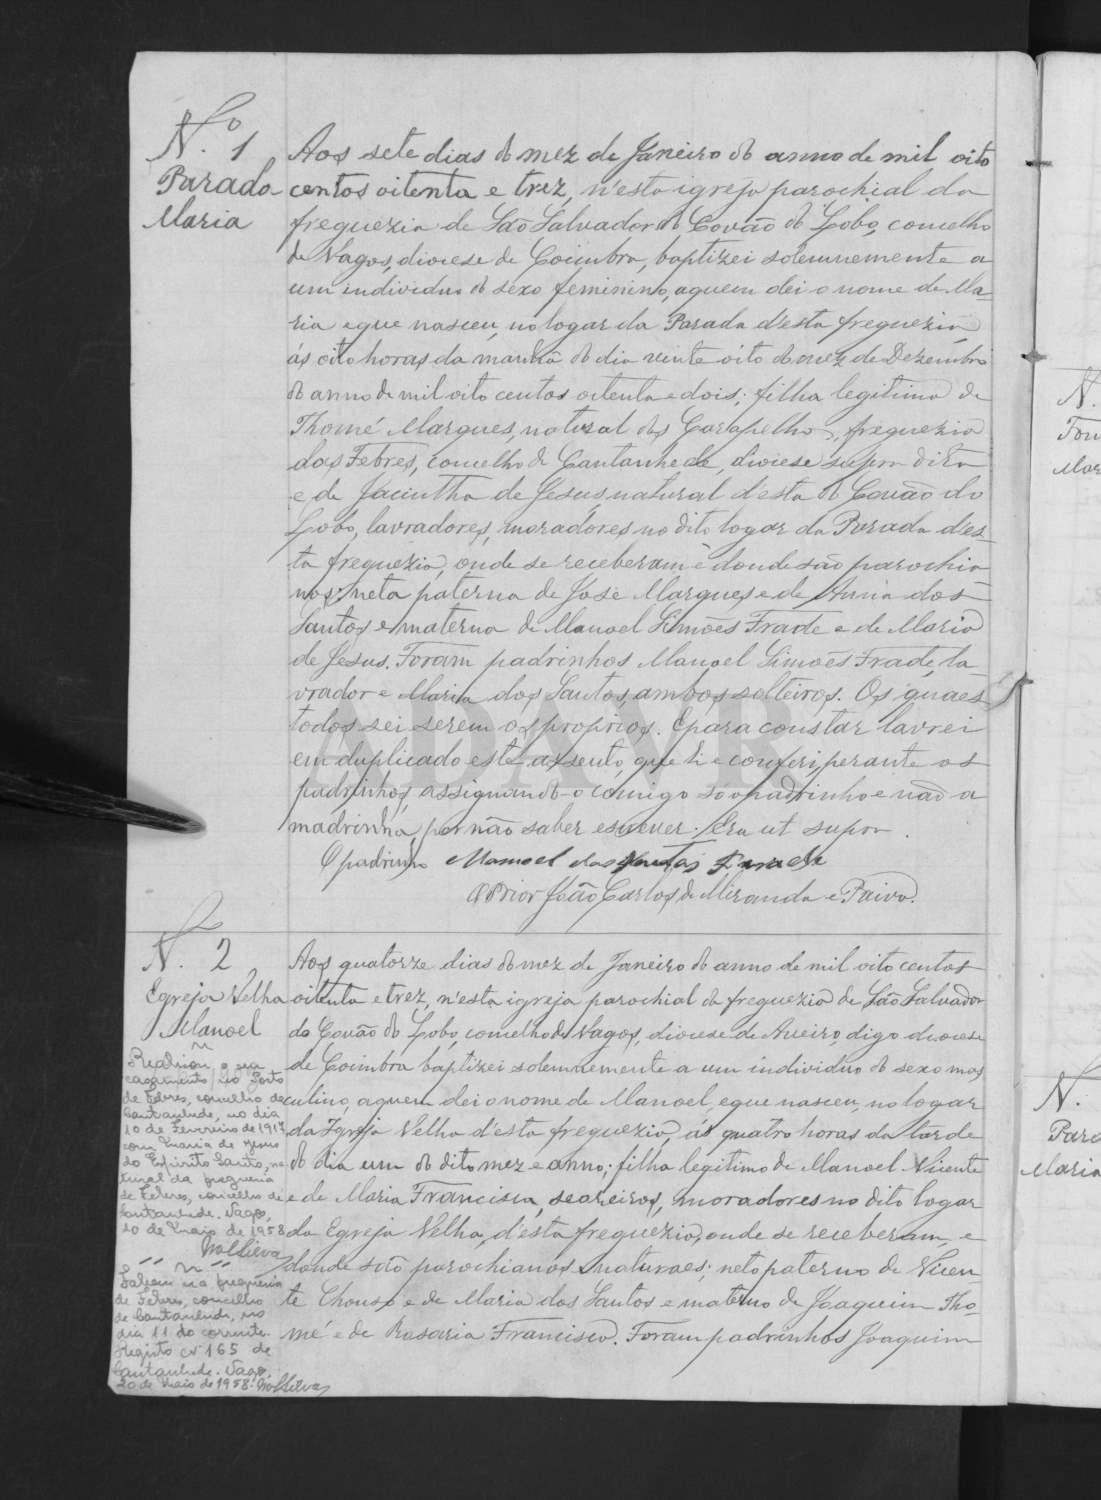 N.º 1
Parada
Maria
Aos sete dias do mez de Janeiro do anno de mil oito
centos oitenta e trez, n'esta igreja parochial da
freguezia de São Salvador do Covão do Lobo, concelho
de Vagos, diocese de Coimbra, baptizei solemnemente a
um individuo do sexo feminino, a quem dei o nome de Ma-
ria e que nasceu, no logar da Parada d'esta freguezia
ás oito horas da manhã do dia vinte oito do mez de Dezembro
do anno de mil oito centos oitenta e dois; filha legitima de
Thomé Marques, natural do Corticeiro, freguezia
das Febres, concelho de Cantanhede, diocese supra dita
e de Jacintha de Jesus natural d'esta do Covão do
Lobo, lavradores, moradores no dito logar da Parada des-
ta freguezia, onde se receberam e donde são parochia
nos; neta paterna de José Marques e de Anna dos
Santos e materna de Manoel Simões Frade e de Maria
de Jesus. Foram padrinhos Manoel Simões Frade, la-
vrador e Maria dos Santos, ambos solteiros. Os quaes
todos sei serem os proprios. E para constar lavrei
em duplicado este assento, que li e conferi perante os
padrinhos, assignando-o comigo só o padrinho e não a
madrinha, por não saber escrever. Era ut supra.
O padrinho Manoel dos Frade
O Prior João Carlos de Miranda e Paiva.
N. 2
Egreja Velha
Manoel
Aos quatorze dias do mez de Janeiro do anno de mil oito centos
oitenta e trez, n'esta igreja parochial da freguezia de São Salvador
do Covão do Lobo, concelho de Vagos, diocese de Aveiro, digo diocese
de Coimbra baptizei solemnemente a um individuo do sexo mas
culino, a quem dei o nome de Manoel, e que nasceu, no logar
da Igreja Velha d'esta freguezia, ás quatro horas da tarde
do dia um do dito mez e anno; filho legitimo de Manoel Vicente
e de Maria Francisca, seareiros, moradores no dito logar
da Egreja Velha, d'esta freguezia, onde se receberam, e
donde são parochianos e naturaes; neto paterno de Vicen-
te Chouso e de Maria dos Santos e materno de Joaquim Tho-
mé e de Rosaria Francisca. Foram padrinhos Joaquim
Realizou o seu
casamento no Posto
de Febres, concelho de
Cantanhede, no dia
10 de Fevereiro de 1917
com Maria de Jesus
do Espirito Santo, na
tural da freguesia
de Febres, concelho de
Cantanhede. Vagos,
20 de Maio de 1958
Faleceu na freguesia
de Febres, concelho
de Cantanhede, no
dia 11 do corrente.
Registo nº 165 de
Cantanhede. Vagos,
20 de Maio de 1958.
ADAVR
N.
N.
Maria